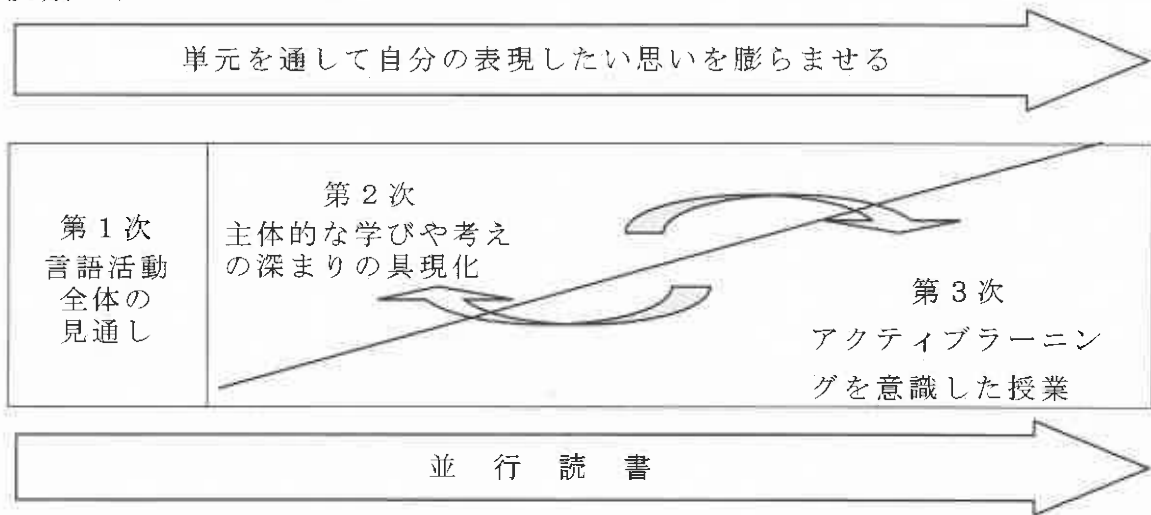 単元を通して自分の表現したい思いを膨らませる
第1次
言語活動
全体の
見通し
第2次
主体的な学びや考え
の深まりの具現化
第3次
アクティブラーニン
グを意識した授業
並行読書